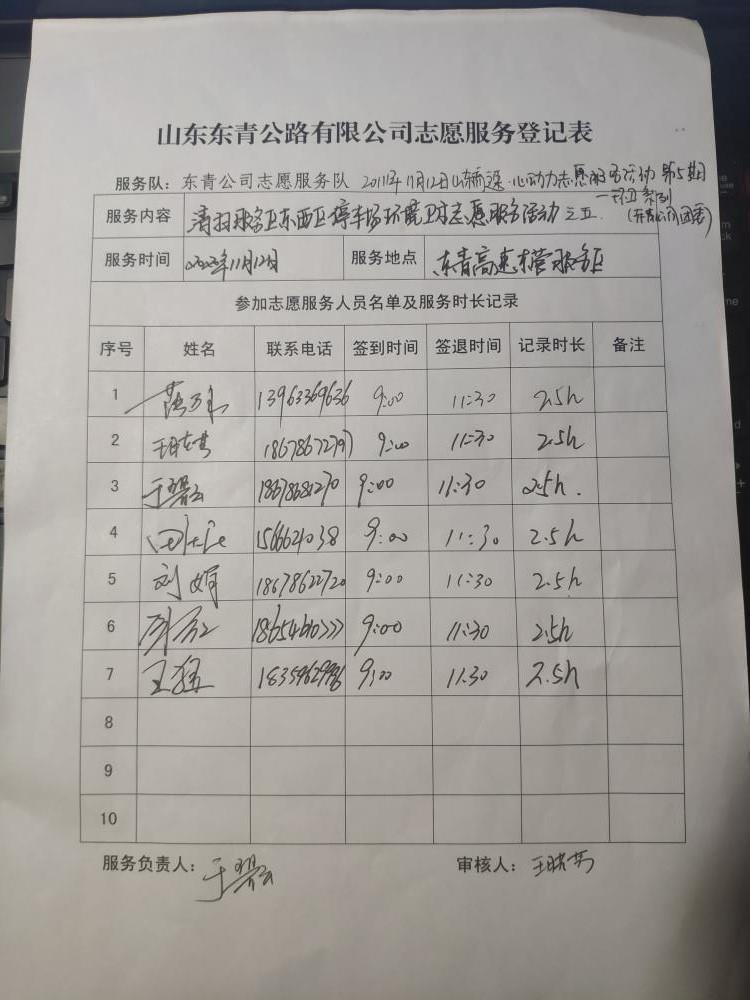 山东东青公路有限公司志愿服务登记表
服务队：东青公司志愿服务队 11月12日 心动力志愿服务活动 第5期
系列
服务内容 清扫服务区东西区停车场环境卫生志愿服务活动之五
服务时间 2023年11月12日 服务地点 东青高速东营服务区
参加志愿服务人员名单及服务时长记录
序号 姓名 联系电话 签到时间 签退时间 记录时长 备注
1 13963369636 9:00 11:30 2.5h
2 9:00 11:30 2.5h
3 于碧云 18678681270 9:00 11:30 2.5h.
4 9:00 11:30 2.5h
5 刘娟 18678622720 9:00 11:30 2.5h
6 9:00 11:30 2.5h
7 王猛 9:00 11:30 2.5h
8
9
10
服务负责人：于碧云 审核人：王晓芳